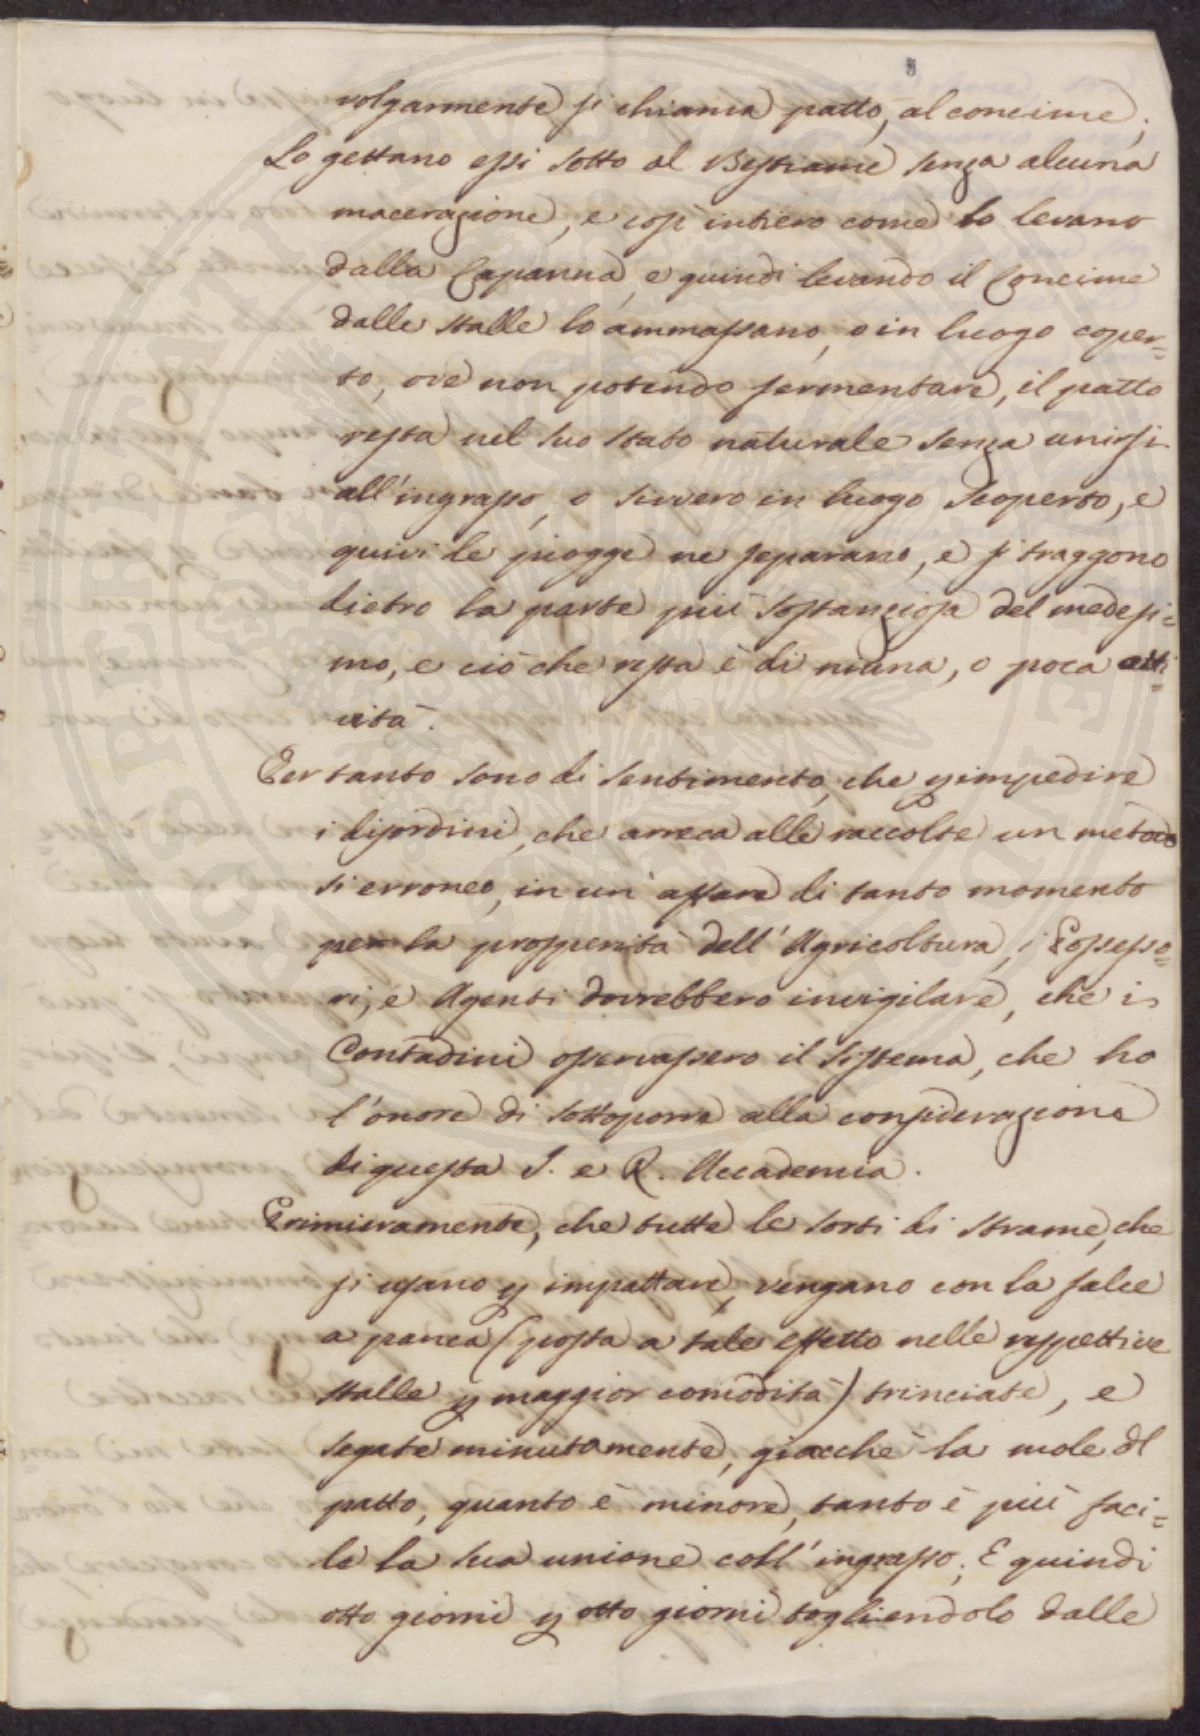 volgarmente si chiama patto, al concime;
Lo gettano essi sotto al Bestiame senza alcuna
macerazione, e così intiero come lo levano
dalla Capanna, e quindi levando il Concime
dalle stalle lo ammassano, o in luogo coper=
to, ove non potendo fermentare, il patto
resta nel suo stato naturale senza unirsi
all'ingrasso, o sivvero in luogo scoperto, e
quivi le piogge ne separano, e si traggono
dietro la parte più sostanziosa del medesi=
mo, e ciò che resta è di niuna, o poca atti=
vità.
Per tanto sono di sentimento, che p impedire
i disordini, che arreca alle raccolte un metodo
sì erroneo, in un' affare di tanto momento
per la prosperità dell'Agricoltura, i Possesso=
ri, e Agenti dovrebbero invigilare, che i
Contadini osservassero il sistema, che ho
l'onore di sottoporre alla considerazione
di questa I. e R. Accademia.
Primieramente, che tutte le sorti di strame, che
si usano p impattare, vengano con la falce
a panca (posta a tale effetto nelle respettive
stalle p maggior comodità) trinciate, e
segate minutamente, giacchè la mole dl
patto, quanto è minore, tanto è più faci=
le la sua unione coll' ingrasso; E quindi
otto giorni p otto giorni togliendolo dalle
SOPPRIMATI PUBLICO